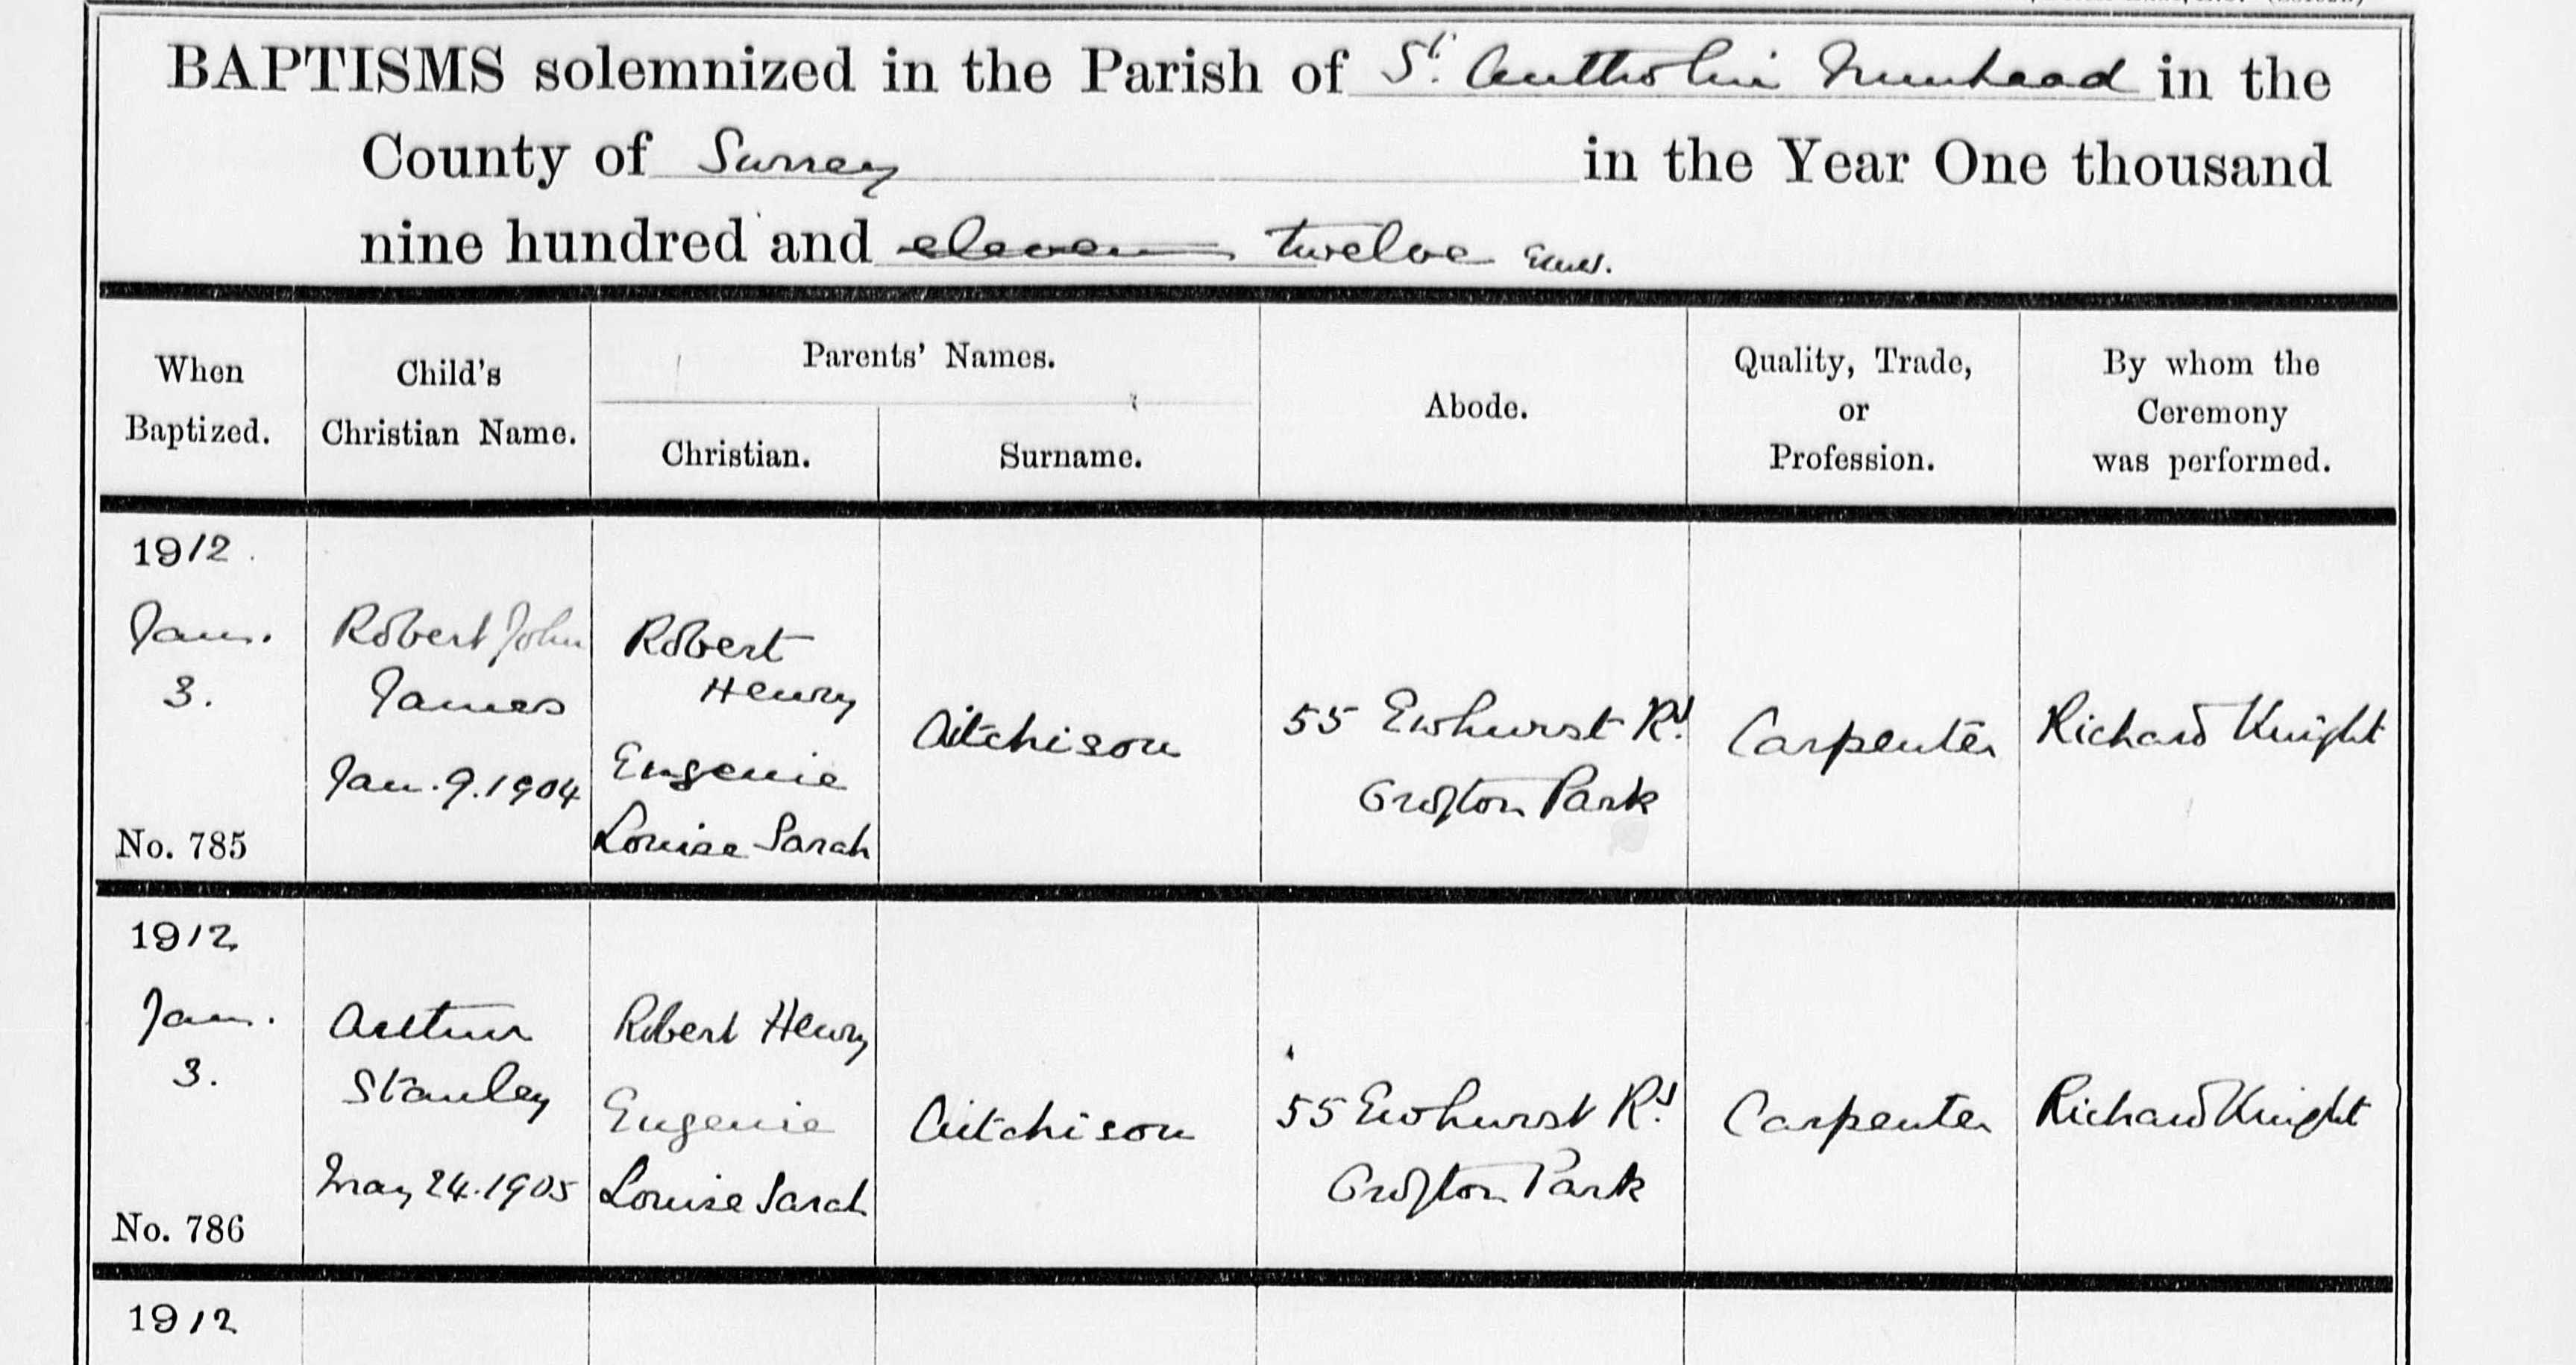 BAPTISMS solemnized in the Parish of St. Antholin Nunhead in the
County of Surrey in the Year One thousand
nine hundred and eleven twelve
When Baptized.
Child's Christian Name.
Parents' Names.
Christian.
Surname.
Abode.
Quality, Trade, or Profession.
By whom the Ceremony was performed.
1912
Jan.
3.
No. 785
Robert John
James
Jan. 9. 1904
Robert
Henry
Eugenie
Louise Sarah
Aitchison
55 Ewhurst Rd.
Crofton Park
Carpenter
Richard Knight
1912
Jan.
3.
No. 786
Arthur
Stanley
May 24. 1905
Robert Henry
Eugenie
Louise Sarah
Aitchison
55 Ewhurst Rd.
Crofton Park
Carpenter
Richard Knight
1912